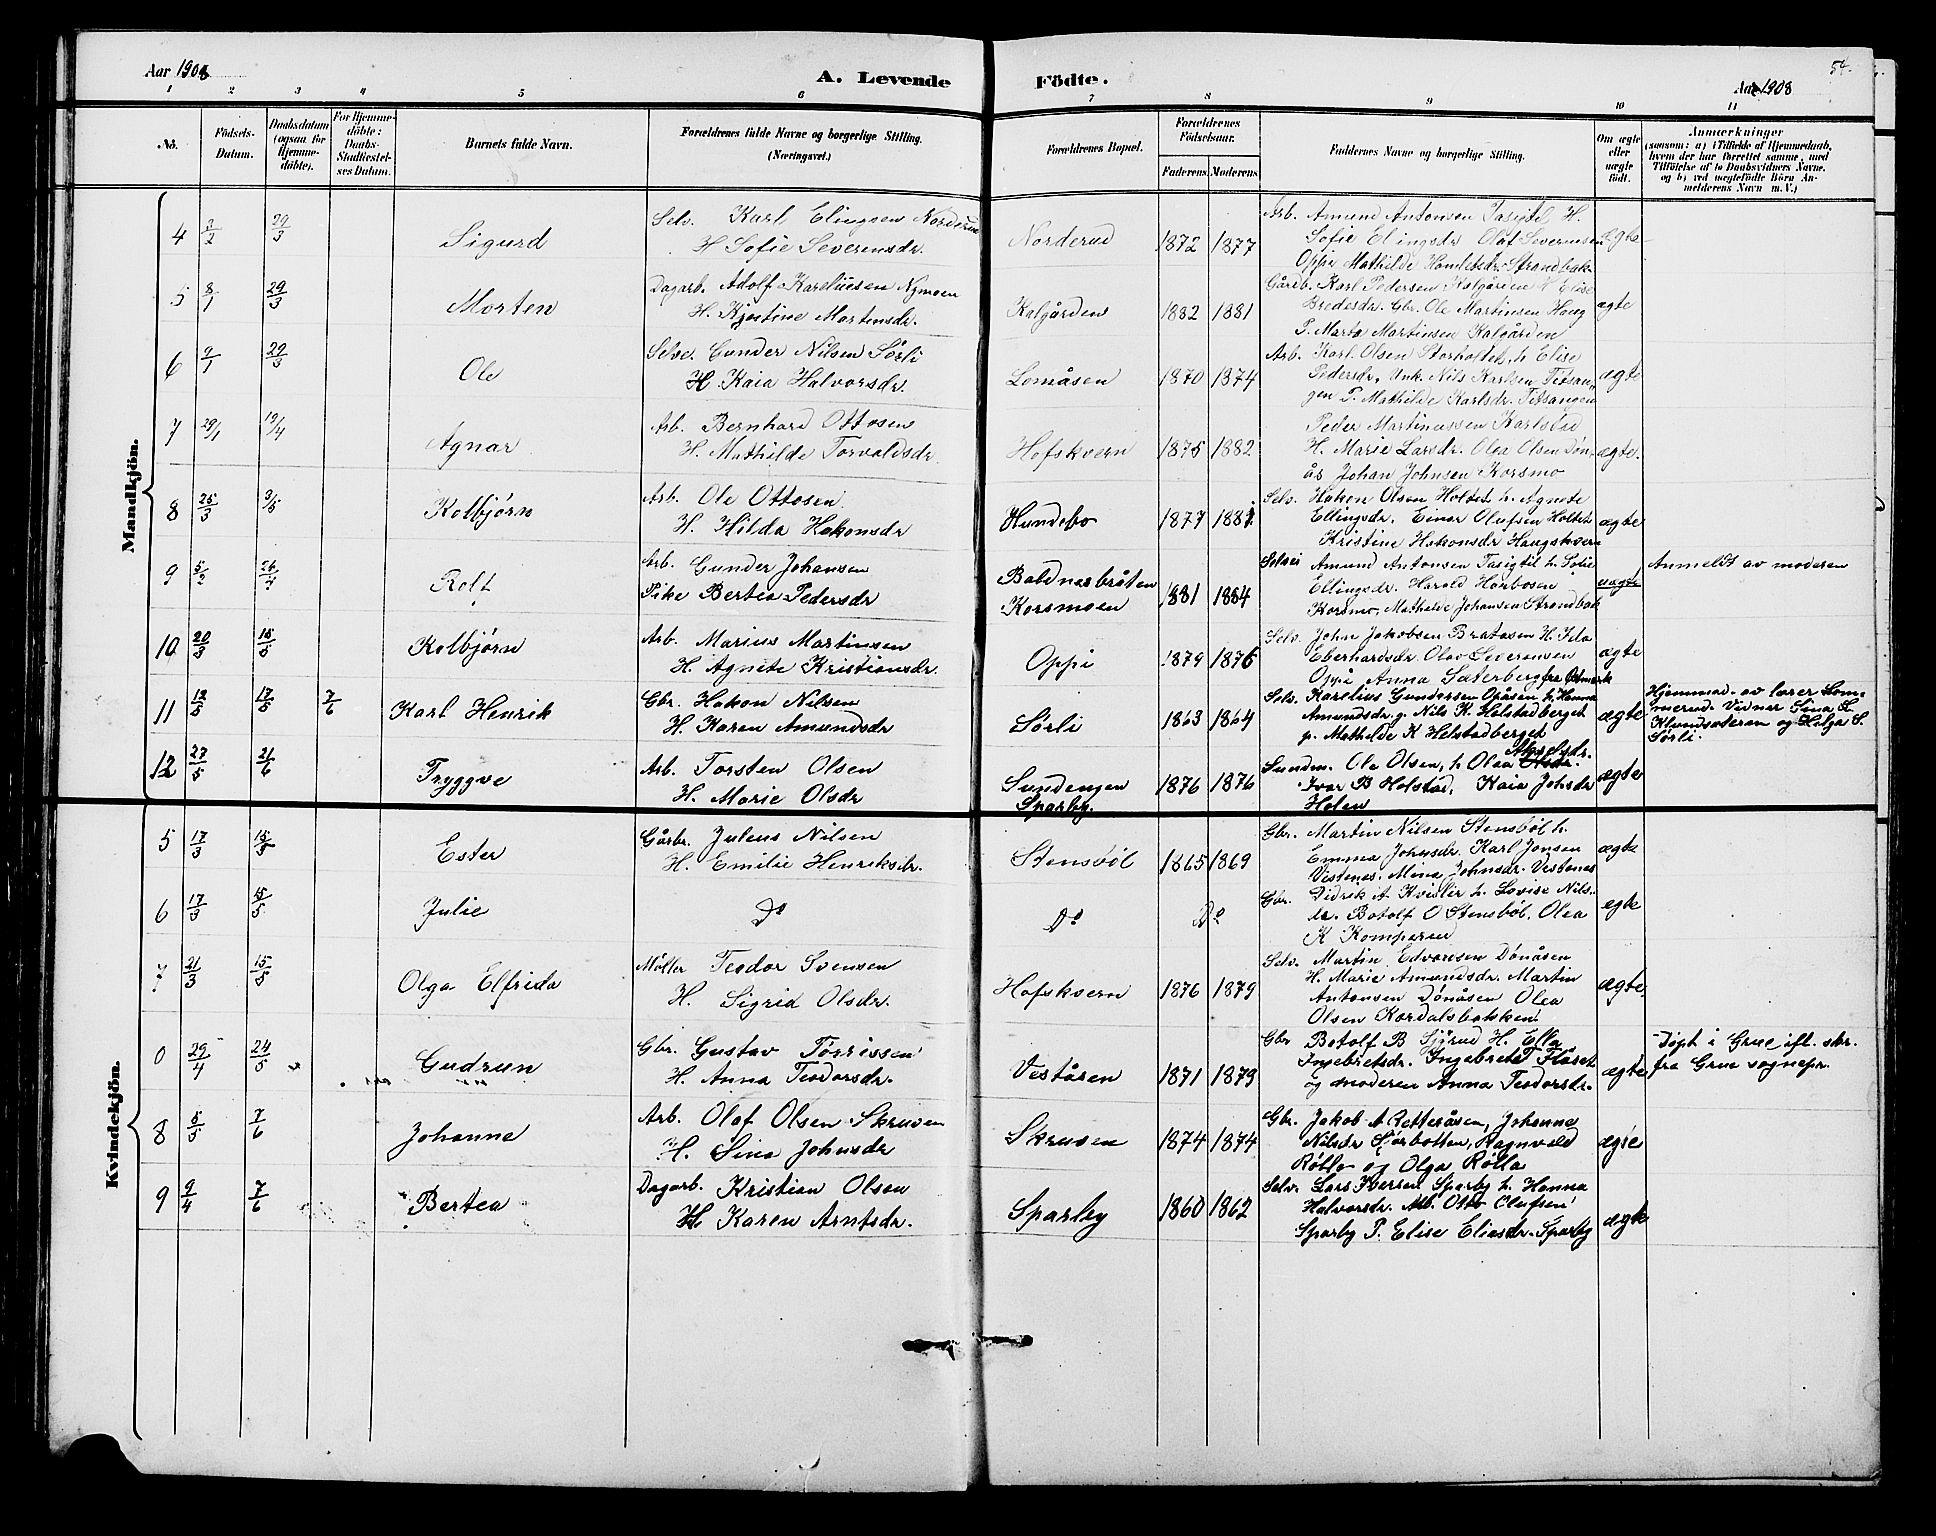 Aar 1908
A. Levende
Födte.
Aar 1908
54.
1 2 3 4 5 6 7 8 9 10 11
No.
Födsels-
Datum.
Daabsdatum
(ogsaa for
Hjemme-
döbte).
For Hjemme-
döbte:
Daabs-
Stadfæstel-
ses Datum.
Barnets fulde Navn.
Forældrenes fulde Navne og borgerlige Stilling.
(Næringsvei.)
Forældrenes Bopæl.
Forældrenes
Födselsaar.
Faderens. Moderens.
Faddernes Navne og borgerlige Stilling.
Om ægte
eller
uægte
födt.
Anmærkninger
(saasom: a) i Tilfælde af Hjemmedaab,
hvem der har forrettet samme, med
Tilföielse af to Daabsvidners Navne,
og b) ved uægtefödte Börn An-
melderens Navn m. V.)
Mandkjön.
4 2/2 29/3 Sigurd
Selv. Karl Elingsen Norderud
H Sofie Severensdr.
Norderud 1872 1877
Arb. Amund Antonsen Tasigtil H.
Sofie Elingsdr Olaf Severinsen
Oppi Mathilde Strandbak
ægte
5 8/1 29/3 Morten
Dagarb. Adolf Kareliusen Nymoen
H. Kjøstine Martinsdr.
Kalgården 1882 1881
Gårdb. Karl Pedersen Kalgården H Elise
Bredesdr. Gbr. Ole Martinsen Haug
P. Marta Martinsen Kalgården
ægte
6 9/1 29/3 Ole
Selve. Gunder Nilsen Sørli
H. Kaia Halvorsdr.
Lomåsen 1870 1874
Arb. Karl Olsen Storholtet, h. Elise
Pedersdr, Unk. Nils Karlsen Titsan-
gen P. Mathilde Karlsdr. Titsangen
ægte
7 29/1 19/4 Agnar
Arb. Bernhard Ottosen
H. Mathilde Torvaldsdr.
Hofskvern 1875 1882
Peder Martinussen Karlstad
H. Marie Larsdr. Olea Olsen Døn-
ås Johan Johnsen Korsmo
ægte.
8 25/3 3/5 Kolbjørn
Arb. Ole Ottosen
H. Hilda Hakonsdr
Hundebo 1877 1881
Selv. Hakon Olsen Holtet h. Agnete
Ellingsdr. Einar Olufsen Holtet
Kristine Hakonsdr Haugskvern
ægte
9 5/2 26/4 Rolf
Arb. Gunder Johansen
Pike Bertea Pedersdr
Baldnesbråten
Korsmoen 1881 1884
Selvei Amund Antonsen Tasigtil h. Sofie
Ellingsdr. Harald Harbosen
Korsmo, Mathilde Johansen Strandbak
uægte
Anmeldt av moderen
10 20/3 15/5 Kolbjørn
Arb. Marius Martinsen
H. Agnete Kristiansdr.
Oppi 1879 1876
Selv. John Jakobsen Bratåsen H. Ida
Eberhardsdr. Olav Severensen
Oppi Anna Sæterberg fra
ægte
11 12/5 17/5 7/6 Karl Henrik
Gbr. Hakon Nilsen
H. Karen Amundsdr
Sørli 1863 1864
Selv. Karelius Gundersen Opåsen h. Hanna
Amundsdr g. Nils K. Helstadberget
p. Mathilde K Helstadberget
ægte
Hjemmed. av lærer Lom-
merud. Vidner Sina L.
Klundsæteren og Helga S.
Sørli.
12 27/5 21/6 Tryggve
Arb. Torsten Olsen
H. Marie Olsdr
Sundengen
Sparby. 1876 1876
Sunden. Ole Olsen, h. Olea Olsdr.
Ivar B Holstad, Kaia Johsdr
Holen
ægte
Kvindekjön.
5 17/3 15/5 Ester
Gårbr. Juleus Nilsen
H. Emilie Henriksdr.
Stensböl 1865 1869
Gbr. Martin Nilsen Stensböl h.
Emma Johnsdr. Karl Jonsen
Vestenes. Mina Johnsdr. Vestenes
ægte
6 17/3 15/5 Julie
Do
Do
Do
Gbr. Didrik A. Kvisler h. Lovise Nils-
dr. Botolf O Stensböl, Olea
K Komperud
ægte
7 21/3 15/5 Olga Elfrida
Møller Teodor Svensen
H. Sigrid Olsdr.
Hofskvern 1876 1879
Selv. Martin Edvardsen Dönåsen
H. Marie Amundsdr. Martin
Antonsen Dönåsen Olea
Olsen Kordalsbakken
ægte.
0 29/4 24/5 Gudrun
Gbr. Gustav Tørrissen
H. Anna Teodorsdr.
Veståsen 1871 1879
Gbr Botolf B Sjørud H. Ella
Ingebretsdr. Ingebret T Flåset
og moderen Anna Teodorsdr.
ægte
Døpt i Grue ifl. skr.
fra Grue sognepr.
8 5/5 7/6 Johanne
Arb. Olaf Olsen Skrusen
H. Sina Johnsdr
Skrusen 1874 1874
Gbr. Jakob A Retteråsen, Johanne
Nilsdr Sjørbotten, Ragnvald
Røtta og Olga Røtta
ægte
9 9/4 7/6 Bertea
Dagarb. Kristian Olsen
H Karen Arntsdr.
Sparby 1860 1862
Selv. Lars Iversen Sparby h. Hanna
Halvorsdr. Arb. Otto Olufsen
Sparby P. Elise Eliasdr. Sparby
ægte